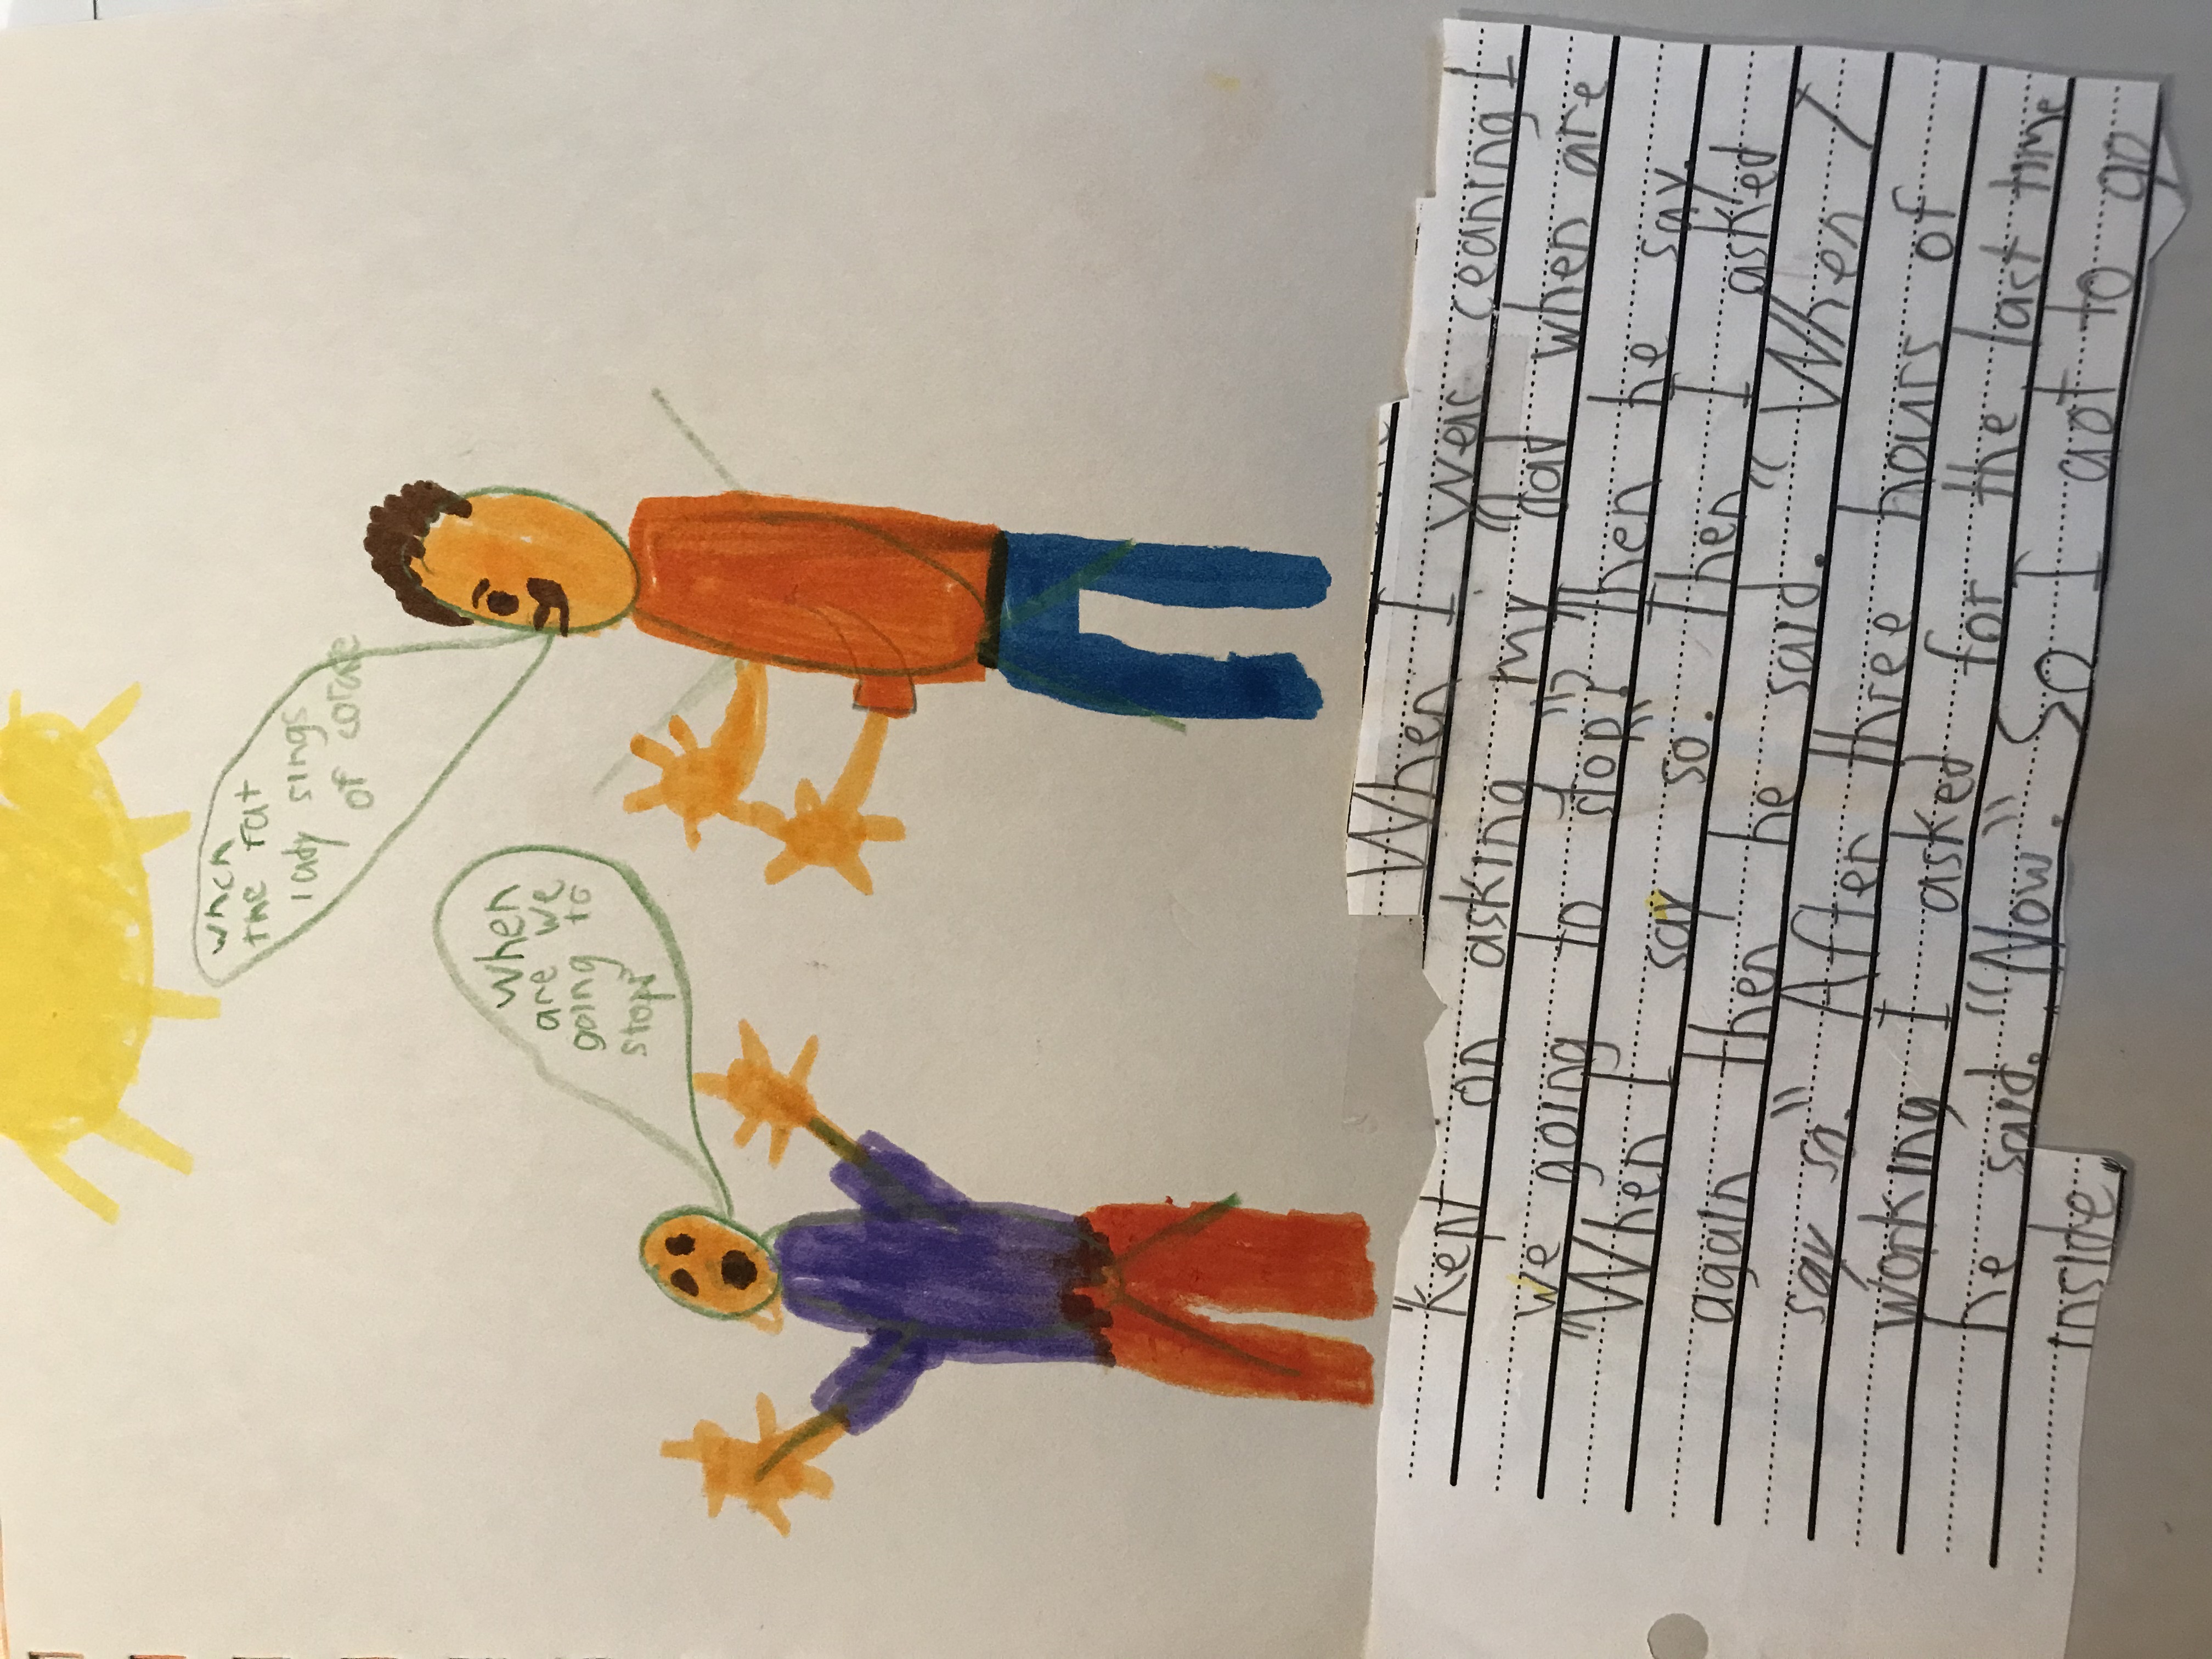 when
the fat
lady sings
of corase
when
are we
going to
stop?
When I wer ceaning I
kept on asking my "dad when are
we going to stop"? Then he say.
"When I say so." Then I asked
again then he said. "When I
say so." After three hours of
working I asked for the last time
he said. "Now". So I got to go
inside.